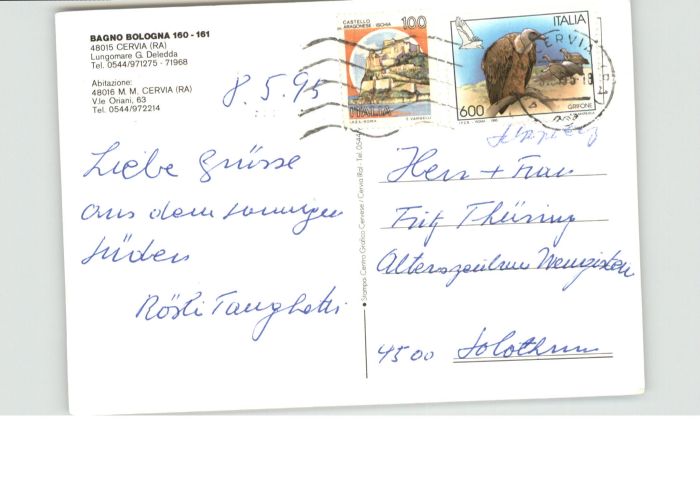 BAGNO BOLOGNA 160 - 161
48015 CERVIA (RA)
Lungomare G. Deledda
Tel. 0544/971275 - 71968
Abitazione:
48016 M. M. CERVIA (RA)
V.le Oriani, 63
Tel. 0544/972214
8.5.95
CASTELLO ARAGONESE - ISCHIA
100
ITALIA
ITALIA
600
GRIFONE
CERVIA
Liebe Grüsse
aus dem sonnigen
Süden
Rösli
Herr + Frau
Fritz Thüring
Alterszentrum
4500 Solothurn
Stampa: Centro Grafico Cervese / Cervia (Ra) - Tel. 0544/